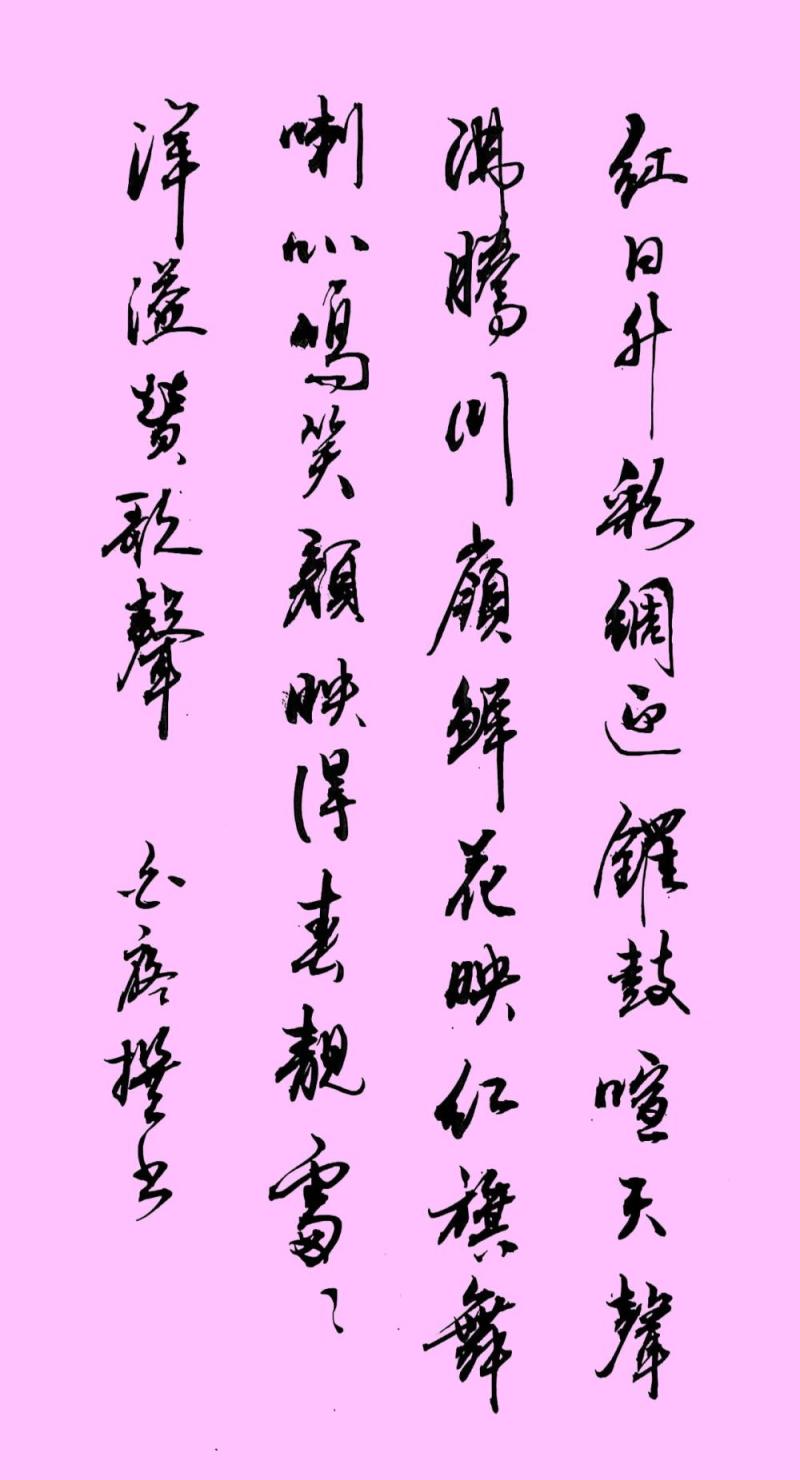 紅日升彩綢迎鑼鼓喧天聲
沸騰川嶺鮮花映紅旗舞
喇叭鳴笑顏映得春靚雷〻
洋溢贊歌聲 撰書